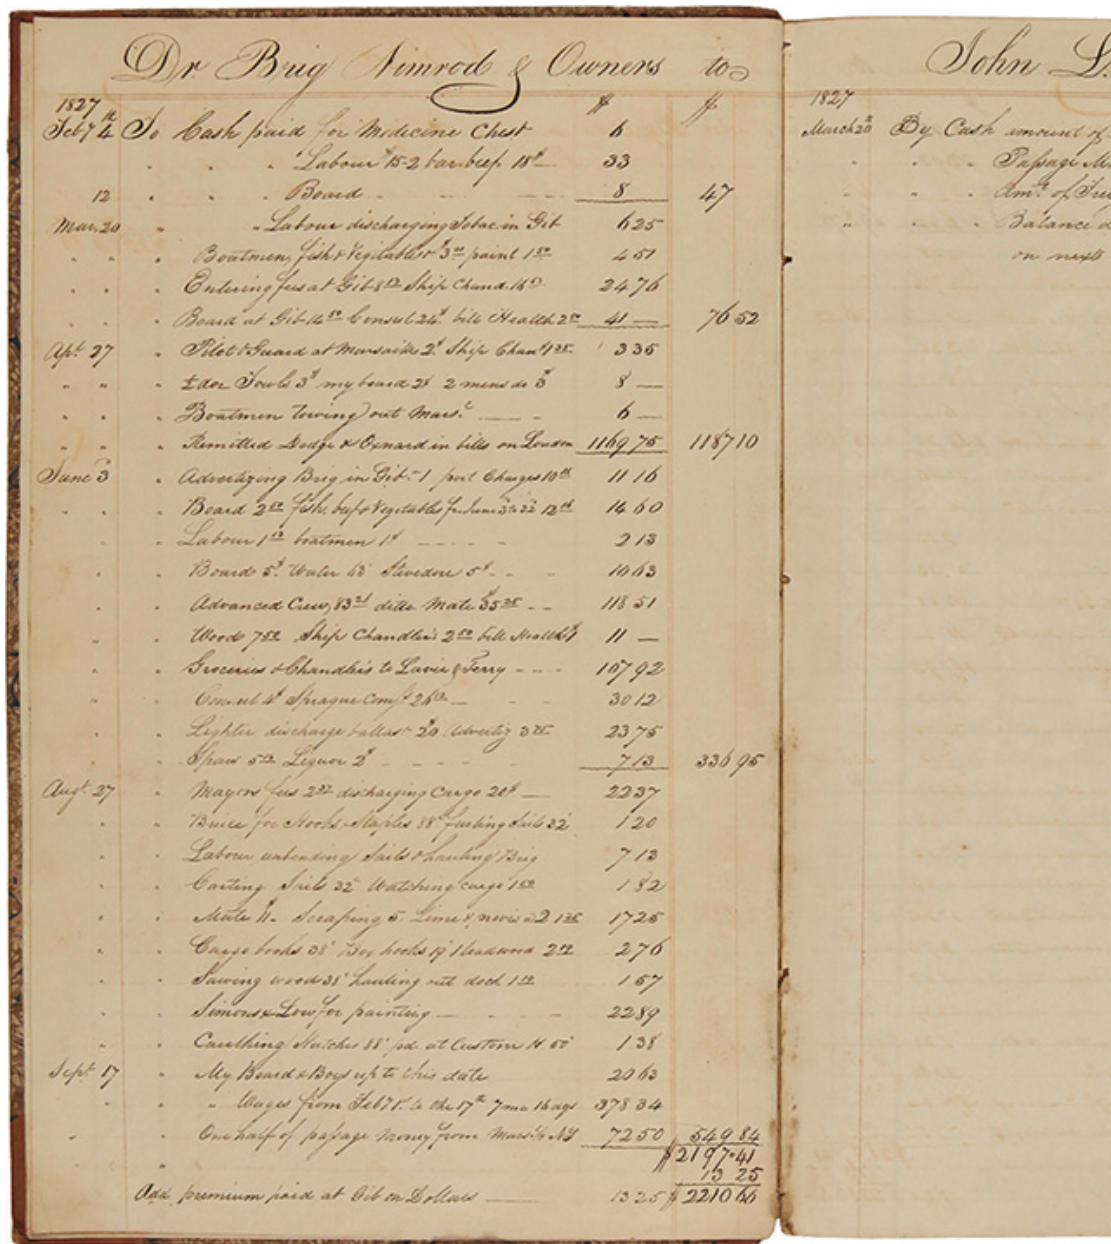 Dr Brig Nimrod & Owners to
1827 $ $
Feby 4th To Cash paid for Medicine Chest 6
" " " Labour $15-2 bar. beef 18$ 33
12 " " " Board 8 47
Mar. 20 " " Labour discharging Tobac. in Gib 6 25
" " " Boatmen, fish & Vegitables 3 paint 1 50 4 51
" " " Entering fees at Gib 8 Ship Chand. 16 24 76
" " " Board at Gib 14 50 Consul 24$ bill Health 2 50 41 — 76 52
Apl. 27 " Pilot & Guard at Marsailles 2$ Ship Chan 1 35 3 35
" " " doz Fowls 3$ my board 2$ 2 mens do 3$ 8 —
" " " Boatmen towing out Mars. 6 —
" " " Remitted Dodge & Oxnard in bills on London 1169 75 1187 10
June 3 " Advertizing Brig in Gib - 1 port Charges 10 16 11 16
" " " Board 2 fish, beef & Vegitables 12 14 60
" " Labour 1 13 boatmen 1$ 2 13
" " Board 5$ Water 63 Stevedore 5$ 10 63
" " Advanced Crew, 83 ditto Mate $35 25 118 51
" " Wood 7 50 Ship Chandler's 2 50 bill Health $1 11 —
" " Groceries & Chandler's to 107 92
" " Consul 4$ Sprague Coms 26 12 30 12
" " Lighter discharge ballast 20$ Advertiz 3 75 23 75
" " Spars 5 13 Liquor 2$ 7 13 336 95
Augt. 27 " Mayors fees 2 37 discharging Cargo 20$ 22 37
" " Brice for Hooks & Staples 88 furling Sails 32 1 20
" " Labour unbending Sails & hauling Brig 7 13
" " Carting Sails 32 Watching cargo 1 50 1 82
" " Mate 11. Scraping 5. Lime 17 25
" " Cargo books 38 Box hooks 19 2 19 2 76
" " Sawing wood 38 hauling out dock 1 19 1 57
" " Simons & Low for painting 22 89
" " Caulking Hatches 88 pd. at Custom H 50 1 38
Sept. 17 " My Board & Boys up to this date 20 63
" " " Wages from Feby 1st. to the 17th 7 mo 16 dys 378 34
" " One half of passage money from Mars. to NY 72 50 549 84
" " $2197.41
13 25
Add premium paid at Gib on Dollars 13 25 $2210 66
John L.
1827
March 20th By Cash amount of
" " " Passage Mo
" " " Amt. of Frei
" " " Balance d
on next